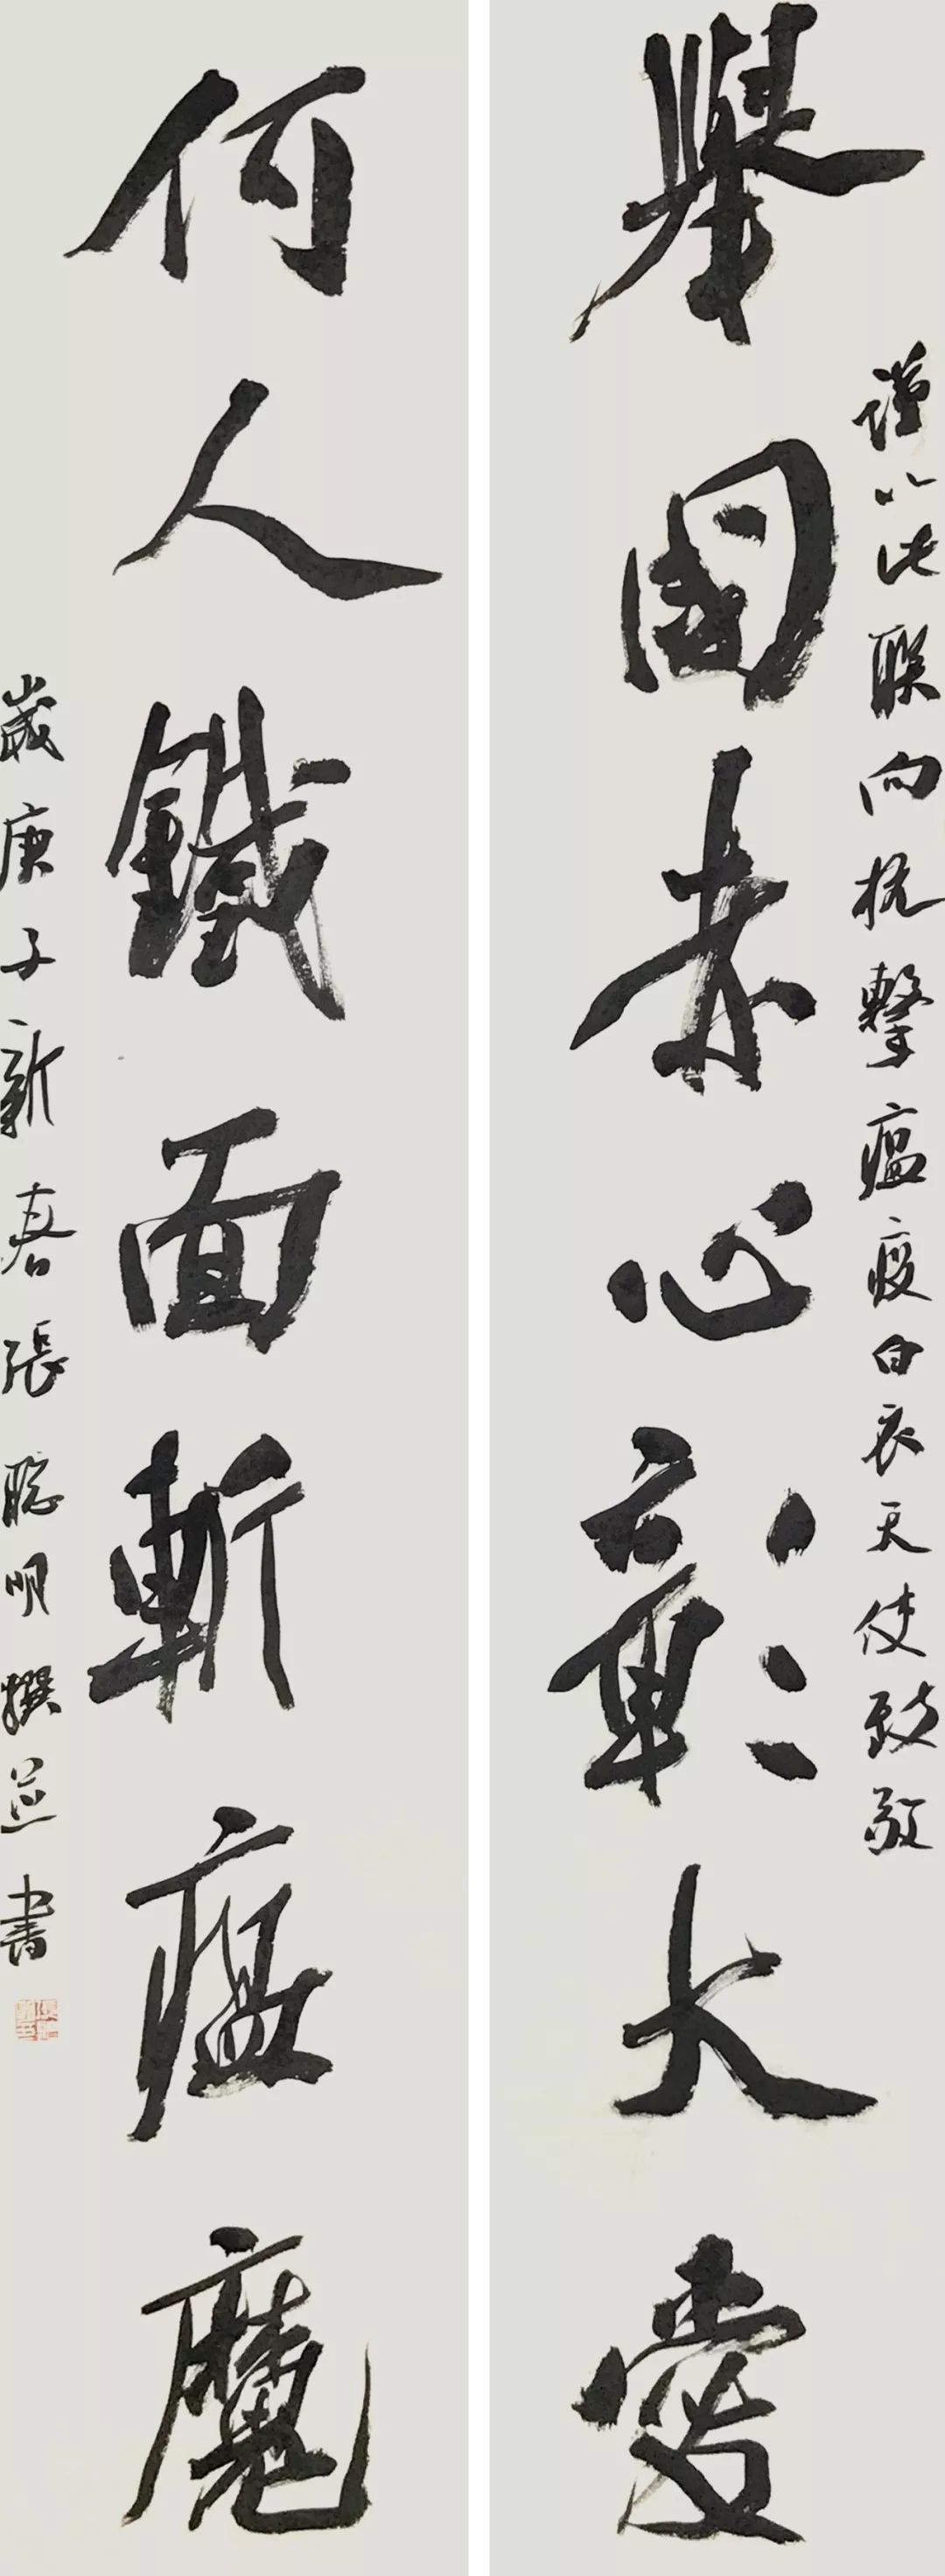 謹以此聯向抗擊瘟疫白衣天使致敬
舉國赤心彰大愛
何人鐵面斬瘟魔
歲庚子新春張聰明撰並書